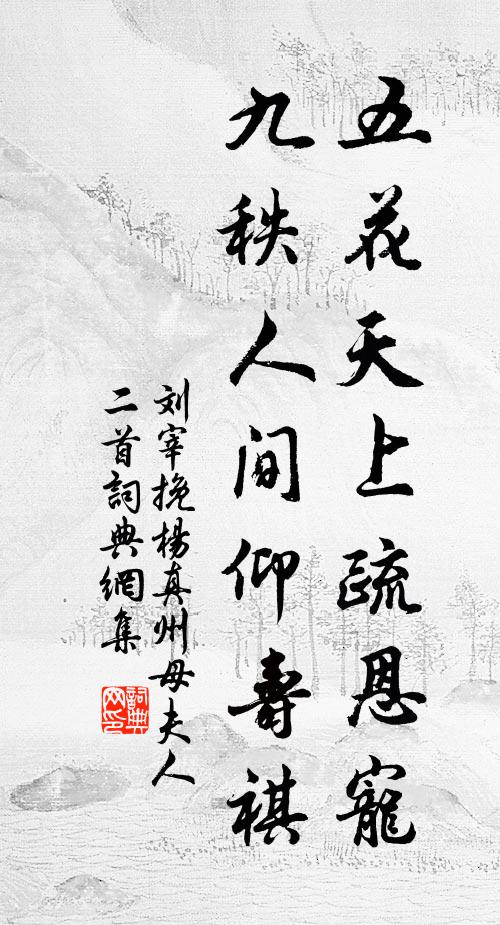 五花天上疏恩寵
九秩人間仰壽祺
刘宰挽楊真州母夫人
二首詞典網集
詞典網印